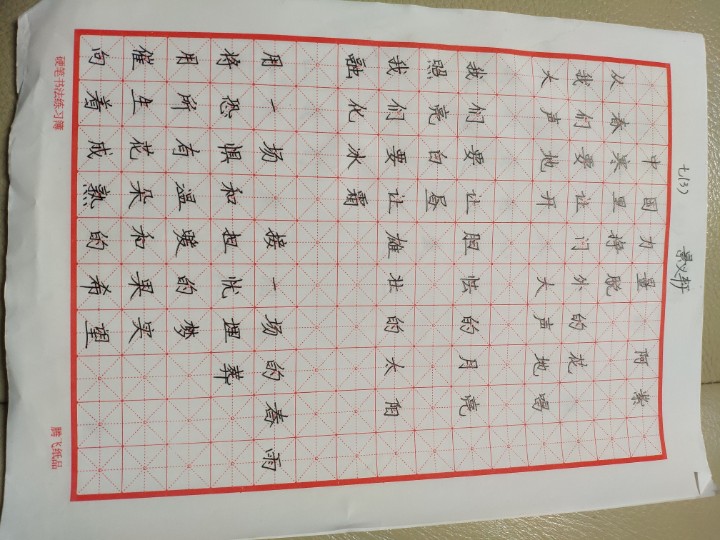 七(3) 景义轩
中国力量 阿紫
从春寒里挣脱
我们要让门外的花
大声地开 大声地唱
我们要让胆怯的月亮
照亮白昼
我们要让雄壮的太阳
融化冰霜
用一场 接一场的春雨
将恐惧和担忧埋葬
用所有温暖的梦
催生花朵和果实
向着成熟的希望
硬笔书法练习簿 腾飞纸品